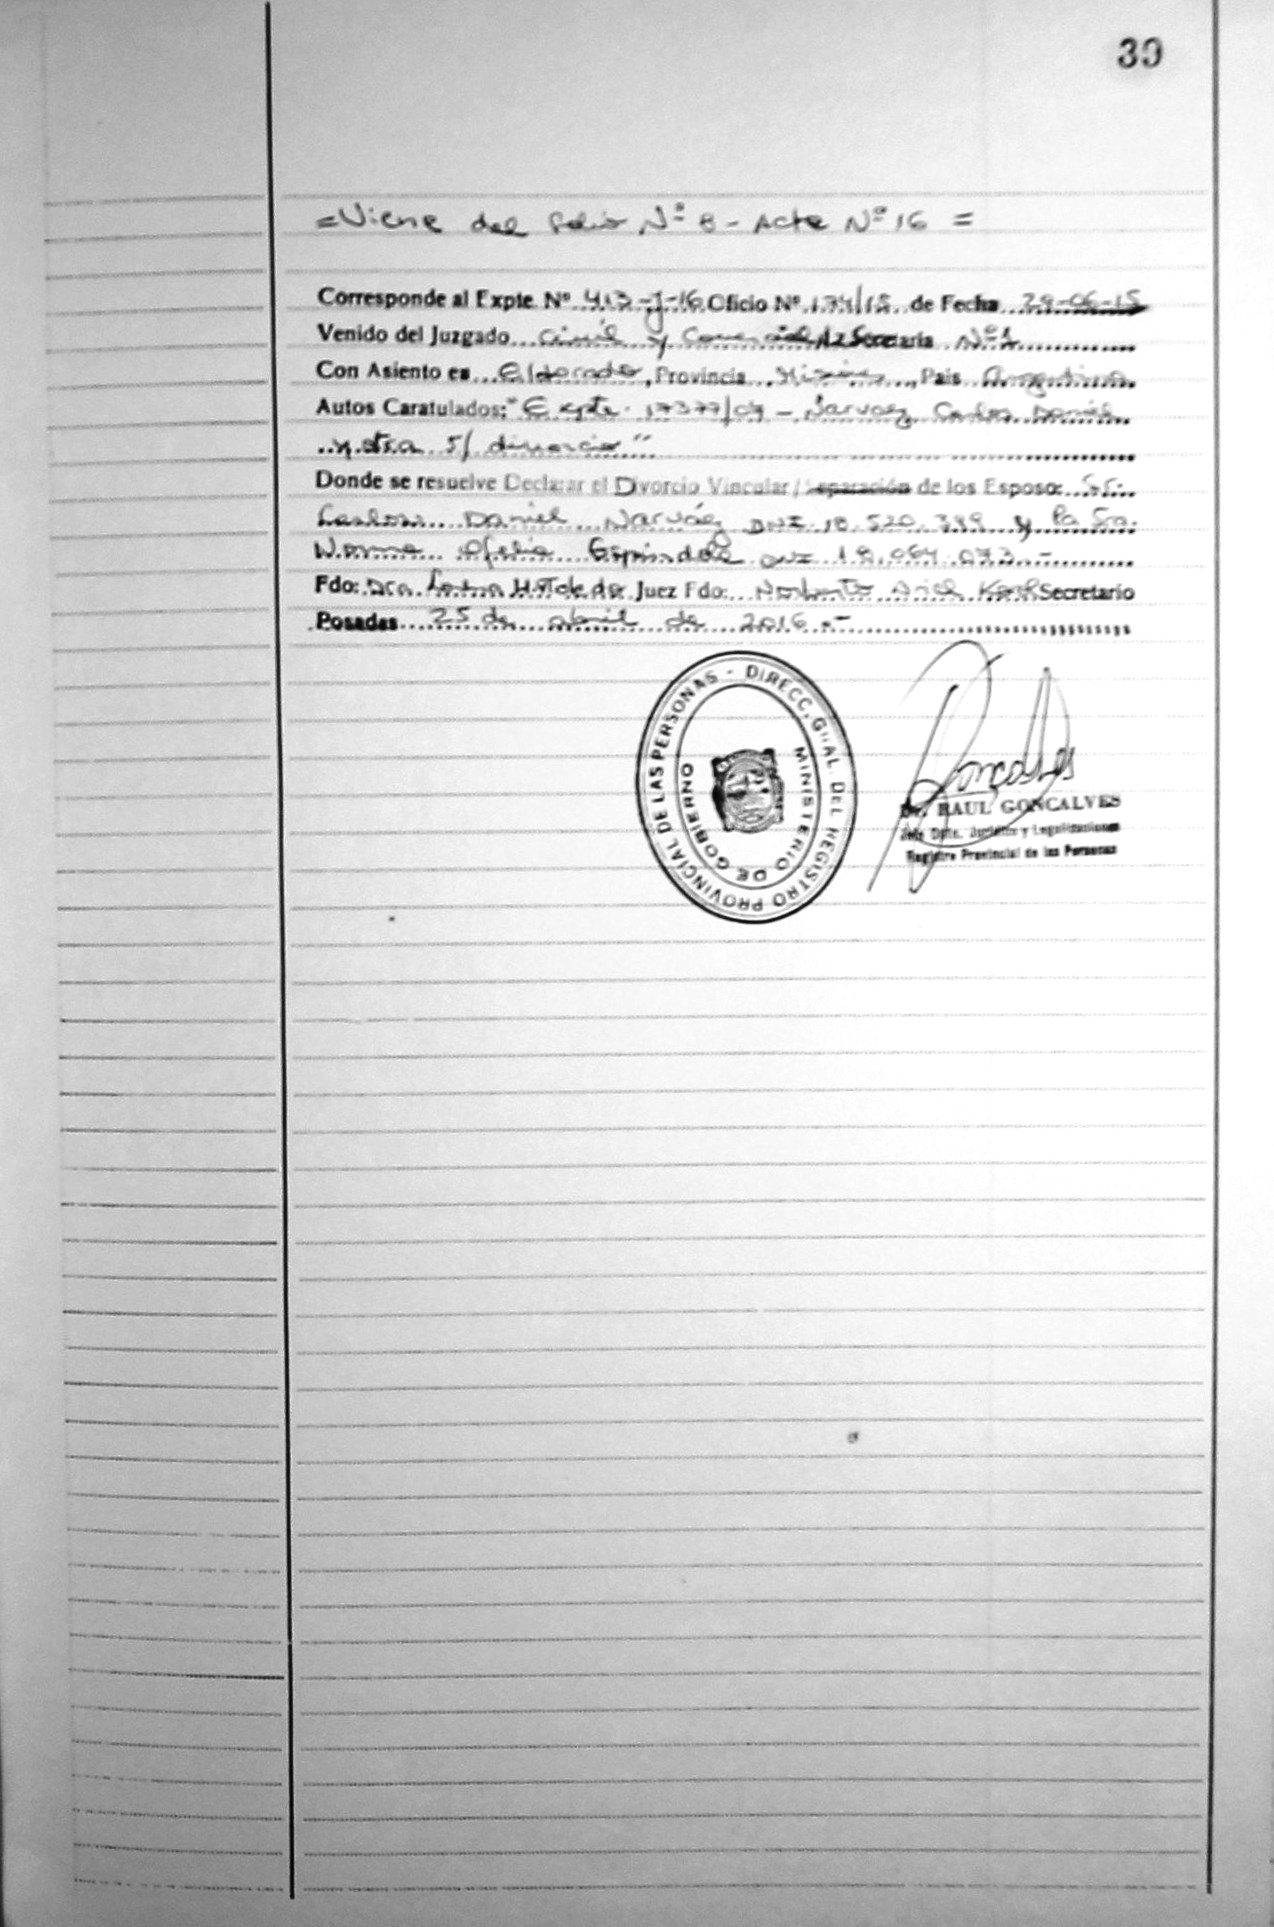 39
=Viene del folio Nº 8 - Acta Nº 16 =
Corresponde al Expte. Nº 413-J-16 Oficio Nº 174/15 de Fecha 29-06-15
Venido del Juzgado Civil y Comercial Secretaria Nº1
Con Asiento en Eldorado, Provincia Misiones, Pais Argentina
Autos Caratulados: "Expte. 17377/09 - Narvaez Carlos Daniel
y otra s/ divorcio"
Donde se resuelve Declarar el Divorcio Vincular / Separación de los Esposos: Sr.
Carlos Daniel Narváez DNI 18.520.399 y la Sra.
Norma Ofelia Espindola DNI 18.064.073.-
Fdo: Dra. H. Toledo Juez Fdo: Norberto Ariel Kork Secretario
Posadas 25 de abril de 2016.-
DIRECC. GRAL. DEL REGISTRO PROVINCIAL DE LAS PERSONAS -
MINISTERIO DE GOBIERNO
Goncalves
Dr. RAUL GONCALVES
Jefe Dpto. Jurídico y Legalizaciones
Registro Provincial de las Personas